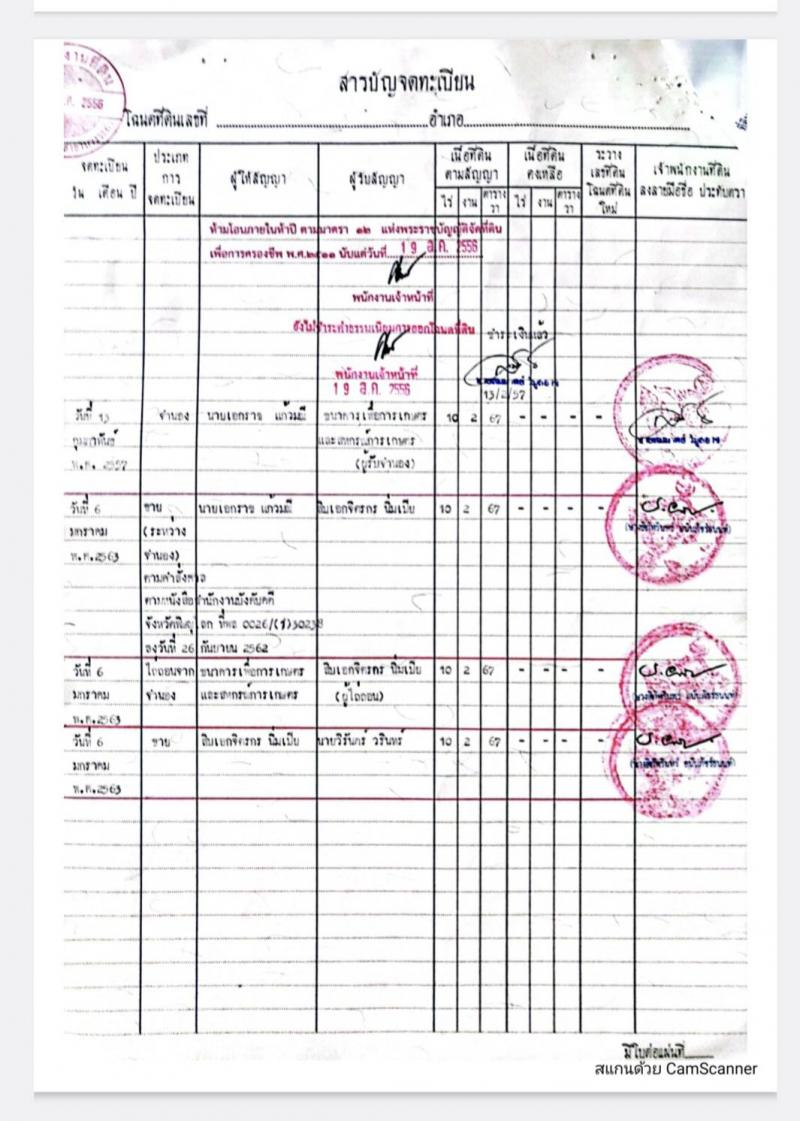 งานที่ดิน
ค. 2556
สารบัญจดทะเบียน
โฉนดที่ดินเลขที่ อำเภอ
จดทะเบียน วัน เดือน ปี
ประเภทการจดทะเบียน
ผู้ให้สัญญา
ผู้รับสัญญา
เนื้อที่ดินตามสัญญา
ไร่ งาน ตารางวา
เนื้อที่ดินคงเหลือ
ไร่ งาน ตารางวา
ระวาง เลขที่ดิน โฉนดที่ดินใหม่
เจ้าพนักงานที่ดิน ลงลายมือชื่อ ประทับตรา
ห้ามโอนภายในห้าปี ตามมาตรา ๑๒ แห่งพระราชบัญญัติจัดที่ดิน
เพื่อการครองชีพ พ.ศ.๒๕๑๑ นับแต่วันที่ 19 ส.ค. 2556
พนักงานเจ้าหน้าที่
ยังไม่ชำระค่าธรรมเนียมการออกโฉนดที่ดิน ชำระเงินแล้ว
พนักงานเจ้าหน้าที่
19 ส.ค. 2556
13/2/57
วันที่ 13 จำนอง นายเอกราช แก้วมณี ธนาคารเพื่อการเกษตร 10 2 67 - - - -
กุมภาพันธ์ และสหกรณ์การเกษตร
พ.ศ. 2557 (ผู้รับจำนอง)
วันที่ 6 ขาย นายเอกราช แก้วมณี สิบเอกจิรกร นิ่มเปีย 10 2 67 - - - -
มกราคม (ระหว่าง
พ.ศ.2563 จำนอง)
ตามคำสั่งศาล
ตามหนังสือสำนักงานบังคับคดี
จังหวัดพิษณุโลก ที่พล 0026/(1)30238
ลงวันที่ 26 กันยายน 2562
วันที่ 6 ไถ่ถอนจาก ธนาคารเพื่อการเกษตร สิบเอกจิรกร นิ่มเปีย 10 2 67 - - - -
มกราคม จำนอง และสหกรณ์การเกษตร (ผู้ไถ่ถอน)
พ.ศ.2563
วันที่ 6 ขาย สิบเอกจิรกร นิ่มเปีย นายวิรันทร์ วรินทร์ 10 2 67 - - - -
มกราคม
พ.ศ.2563
มีใบต่อแผ่นที่
สแกนด้วย CamScanner